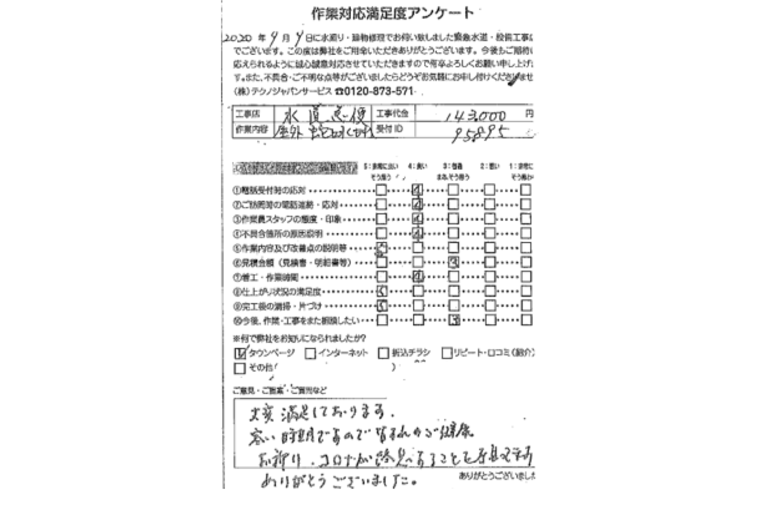 作業対応満足度アンケート
2020年9月9日に水廻り・建物修理でお伺い致しました緊急水道・設備工事に
でございます。この度は弊社をご用命いただきありがとうございます。今後もご期待に
応えられるように誠心誠意対応させていただきますので何卒よろしくお願い申し上げ
す。また、不具合・ご不明な点等がございましたらどうぞお気軽にお申し付けくださいませ
(株)テクノジャパンサービス ☎0120-873-571
工事店 水道急便 工事代金 143,000 円
作業内容 屋外 受付ID 95895
5:非常に良い 4:良い 3:普通 2:悪い 1:非常に
そう思う まあ、そう思う そう
①電話受付時の対応 4
②ご訪問等の電話連絡・応対 4
③作業員スタッフの態度・印象 4
④不具合箇所の原因説明 4
⑤作業内容及び改善点の説明等 5
⑥見積金額(見積書・明細書等) 3
⑦着工・作業時間 4
⑧仕上がり状況の満足度 5
⑨完工後の清掃・片づけ 5
⑩今後、作業・工事をまた依頼したい 3
※何で弊社をお知りになられましたか?
タウンページ インターネット 折込チラシ リピート・口コミ(紹介)
その他( )
ご意見・ご提案・ご質問など
大変満足しております。
暑い時期ですので皆まれのご健康
お祈り、コロナが
ありがとうございました。
ありがとうございました